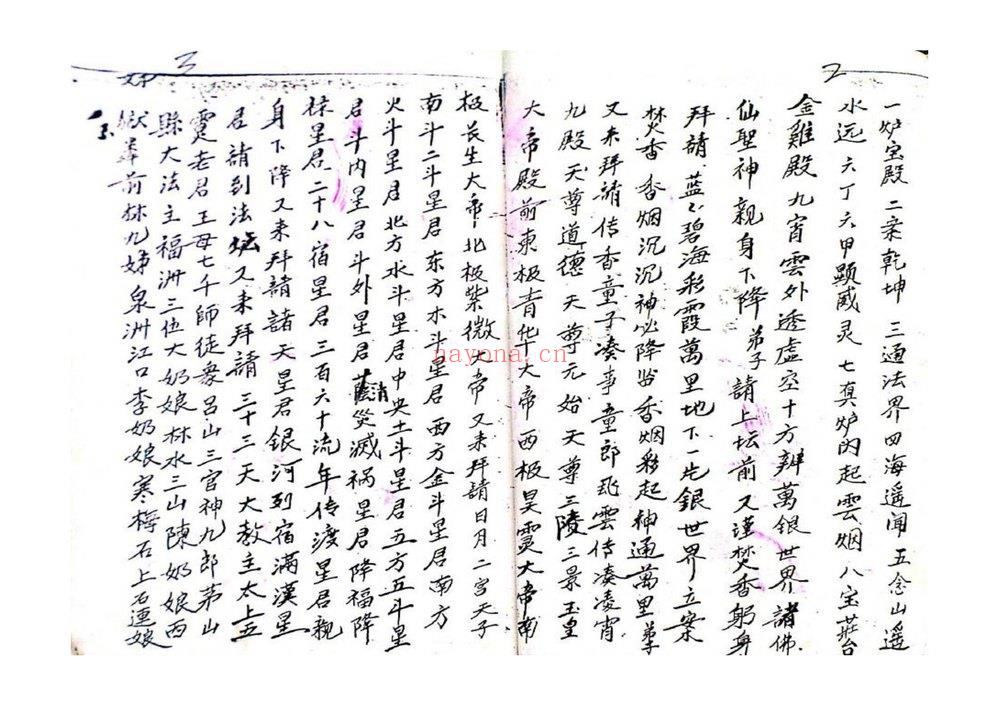 2
一炉宝殿二亲乾坤 三通法界四海遥闻五念山遥
水远六丁六甲顯威灵七真炉内起雲烟八宝莊台
金雞殿九宵雲外透虚空十方辨萬銀世界諸佛
仙聖神親身下降弟子請上坛前又谨焚香躬身
拜請蓝々碧海彩霞萬里地下一片銀世界立案
焚香香烟沉沉神必降岩香烟彩起神通萬里弟子
又来拜請传香童子凑事童郎飛雲传凑凌宵
九殿天尊道德天尊元始天尊三陵三景玉皇
大帝殿前東极青华大帝西极昊靈大帝南
3
极长生大帝北极紫微大帝又来拜請日月二宫天子
南斗二斗星君东方木斗星君西方金斗星君南方
火斗星君北方水斗星君中央土斗星君五方五斗星
君斗内星君斗外星君清災滅祸星君降福降
禄星君二十八宿星君三百六十流年传渡星君親
身下降又来拜請諸天星君銀河列宿滿漢星
君請到法坛又来拜請三十三天大教主太上五
靈老君王母七千師徒衆吕山三宫神九郎茅山
縣大法主福洲三位大奶娘林水三山陳奶娘西
嶽弄前林九娣泉洲江口李奶娘寒梅石上石連娘
娣
nayona.cn